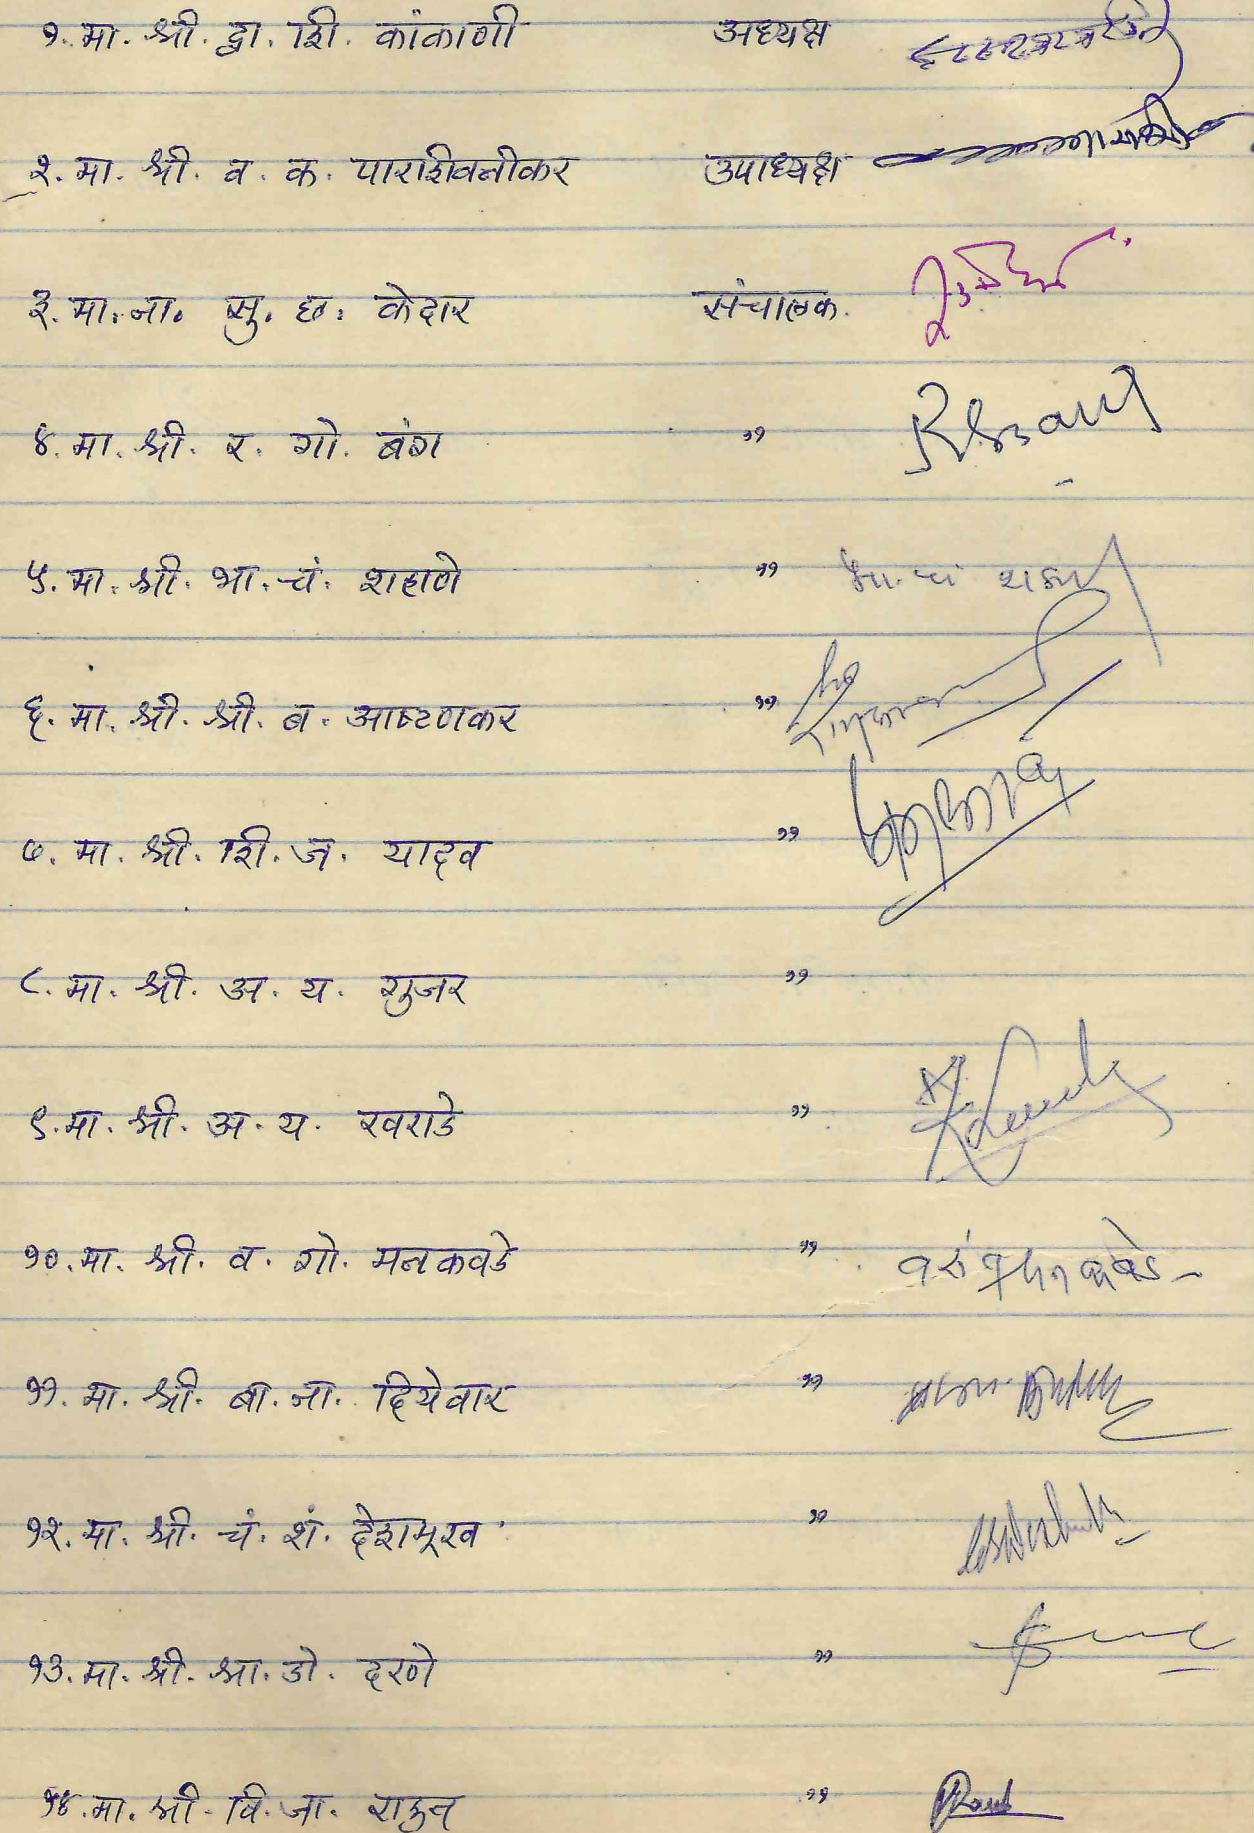 १. मा. श्री. द्वा. शि. कांकाणी अध्यक्ष
२. मा. श्री. व. क. पाराशिवनीकर उपाध्यक्ष
३. मा. ना. सु. छ. केदार संचालक.
४. मा. श्री. र. गो. बंग "
५. मा. श्री. भा. चं. शहाणे " भा. चं
६. मा. श्री. श्री. ब. आष्टणकर "
७. मा. श्री. शि. ज. यादव "
८. मा. श्री. अ. य. गुजर "
९. मा. श्री. अ. य. खराडे "
१०. मा. श्री. व. गो. मनकवडे "
११. मा. श्री. बा. ना. दियेवार "
१२. मा. श्री. चं. शं. देशमूख "
१३. मा. श्री. श्रा. डो. दरणे "
१४. मा. श्री. वि. जा. राऊत "